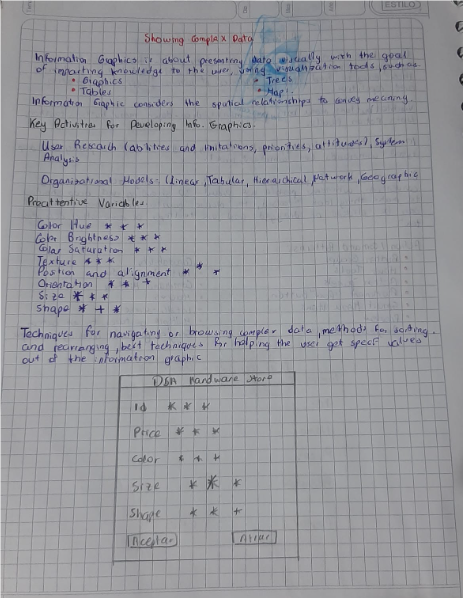 ESTILO
Showing Complex Data
Information Graphics is about presenting data visually with the goal
of imparting knowledge to the user, using visualization tools, such as
• Graphics • Trees
• Tables • Maps
Information Graphic considers the spatial relationships to convey meaning
Key Activities for Developing Info. Graphics.
User Research (abilities and limitations, priorities, attitudes), System
Analysis
Organizational Models: (Linear, Tabular, Hierarchical, Network, Geographic
Preattentive Variables
Color Hue * * *
Color Brightness * * *
Color Saturation * * *
Texture * * *
Position and alignment * * *
Orientation * * *
Size * * *
Shape * + *
Techniques for navigating or browsing complex data, methods for sorting
and rearranging, best techniques for helping the user get specif values
out of the information graphic
Hardware Store
Id * * *
Price * * *
Color * * *
Size * * *
Shape * * +
Aceptar